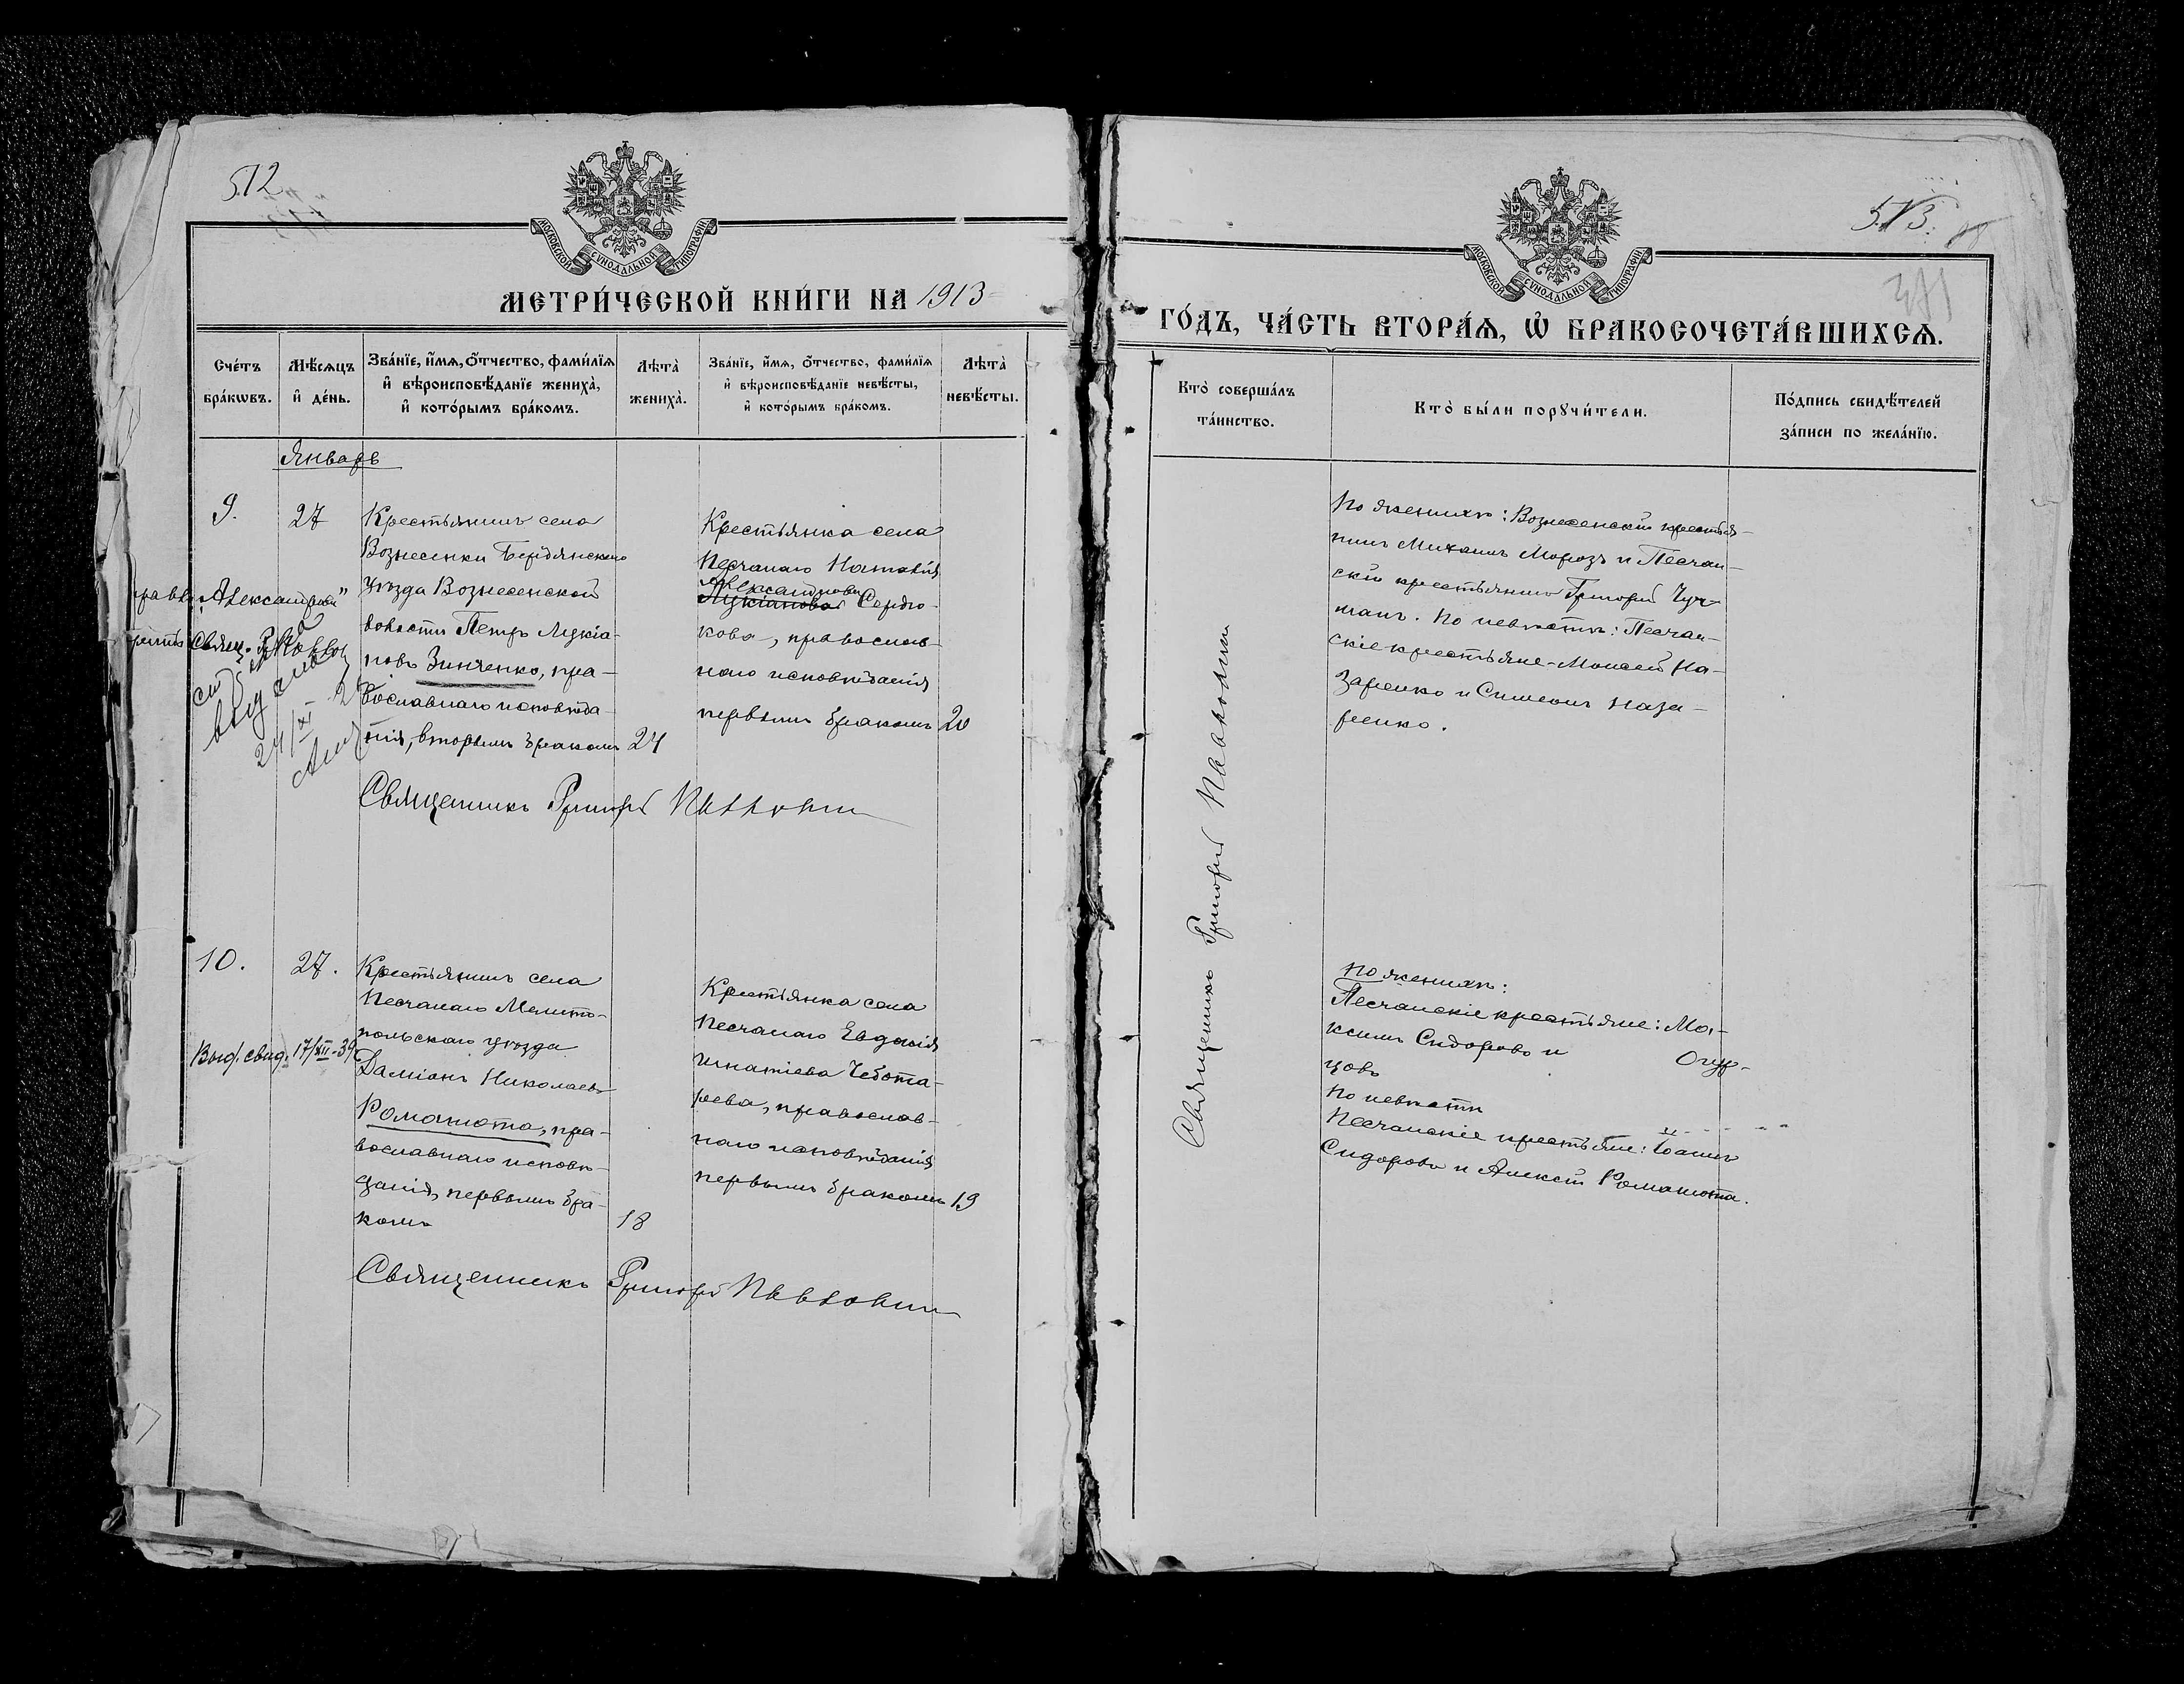 512
МОСКОВСКОЙ СѴНОДАЛЬНОЙ ТИПОГРАФІИ
МЕТРИ́ЧЕСКОЙ КНИ́ГИ НА 1913
Сче́тъ бра́кѡвъ.
Мѣ́сяцъ и҆ де́нь.
Зва́нїе, и҆́мѧ, ѻ҆́тчество, фами́лїѧ
и҆ вѣроисповѣ́данїе жениха̀,
и҆ кото́рымъ бра́комъ.
Лѣта̀ жениха̀.
Зва́нїе, и҆́мѧ, ѻ҆́тчество, фами́лїѧ
и҆ вѣроисповѣ́данїе невѣ́сты,
и҆ кото́рымъ бра́комъ.
Лѣта̀ невѣ́сты.
Январь
9.
27
Крестьянинъ села
Вознесенки Бердянскаго
уѣзда Вознесенской
волости Петръ Лукіа-
новъ Зинченко, пра-
вославнаго исповѣда-
нія, вторымъ бракомъ
24
Крестьянка села
Песчанаго Наталія
Александрова
Лукіанова Сердю-
кова, православ-
наго исповѣданія
первымъ бракомъ
20
„Александрова"
Свящ.
24/XI
Священникъ Григорій Павловскій
10.
27.
Выд. свид. 17/XII-39
Крестьянинъ села
Песчанаго Мелито-
польскаго уѣзда
Даміанъ Николаевъ
Романюта, пра-
вославнаго исповѣ-
данія, первымъ бра-
комъ
18
Крестьянка села
Песчанаго Евдокія
Игнатіева Чебота-
рева, православ-
наго исповѣданія
первымъ бракомъ
19
Священникъ Григорій Павловскій
513.
371
МОСКОВСКОЙ СѴНОДАЛЬНОЙ ТИПОГРАФІИ
ГО́ДЪ, ЧА́СТЬ ВТОРА́Ѧ, Ѡ҆ БРАКОСОЧЕТА́ВШИХСѦ.
Кто̀ соверша́лъ
та́инство.
Кто̀ бы́ли порꙋчи́тели.
По́дпись свидѣ́телей
за́писи по жела́нїю.
Священникъ Григорій Павловскій
По женихѣ: Вознесенскій крестья-
нинъ Михаилъ Морозъ и Песчан-
скій крестьянинъ Григорій
По невѣстѣ: Песчан-
скіе крестьяне - Моисей На-
заренко и Симеонъ Наза-
ренко.
По женихѣ:
Песчанскіе крестьяне: Ма-
ксимъ Сидоровъ и Огур-
цовъ
По невѣстѣ
Песчанскіе крестьяне: Іоаннъ
Сидоровъ и Алексій Романюта.